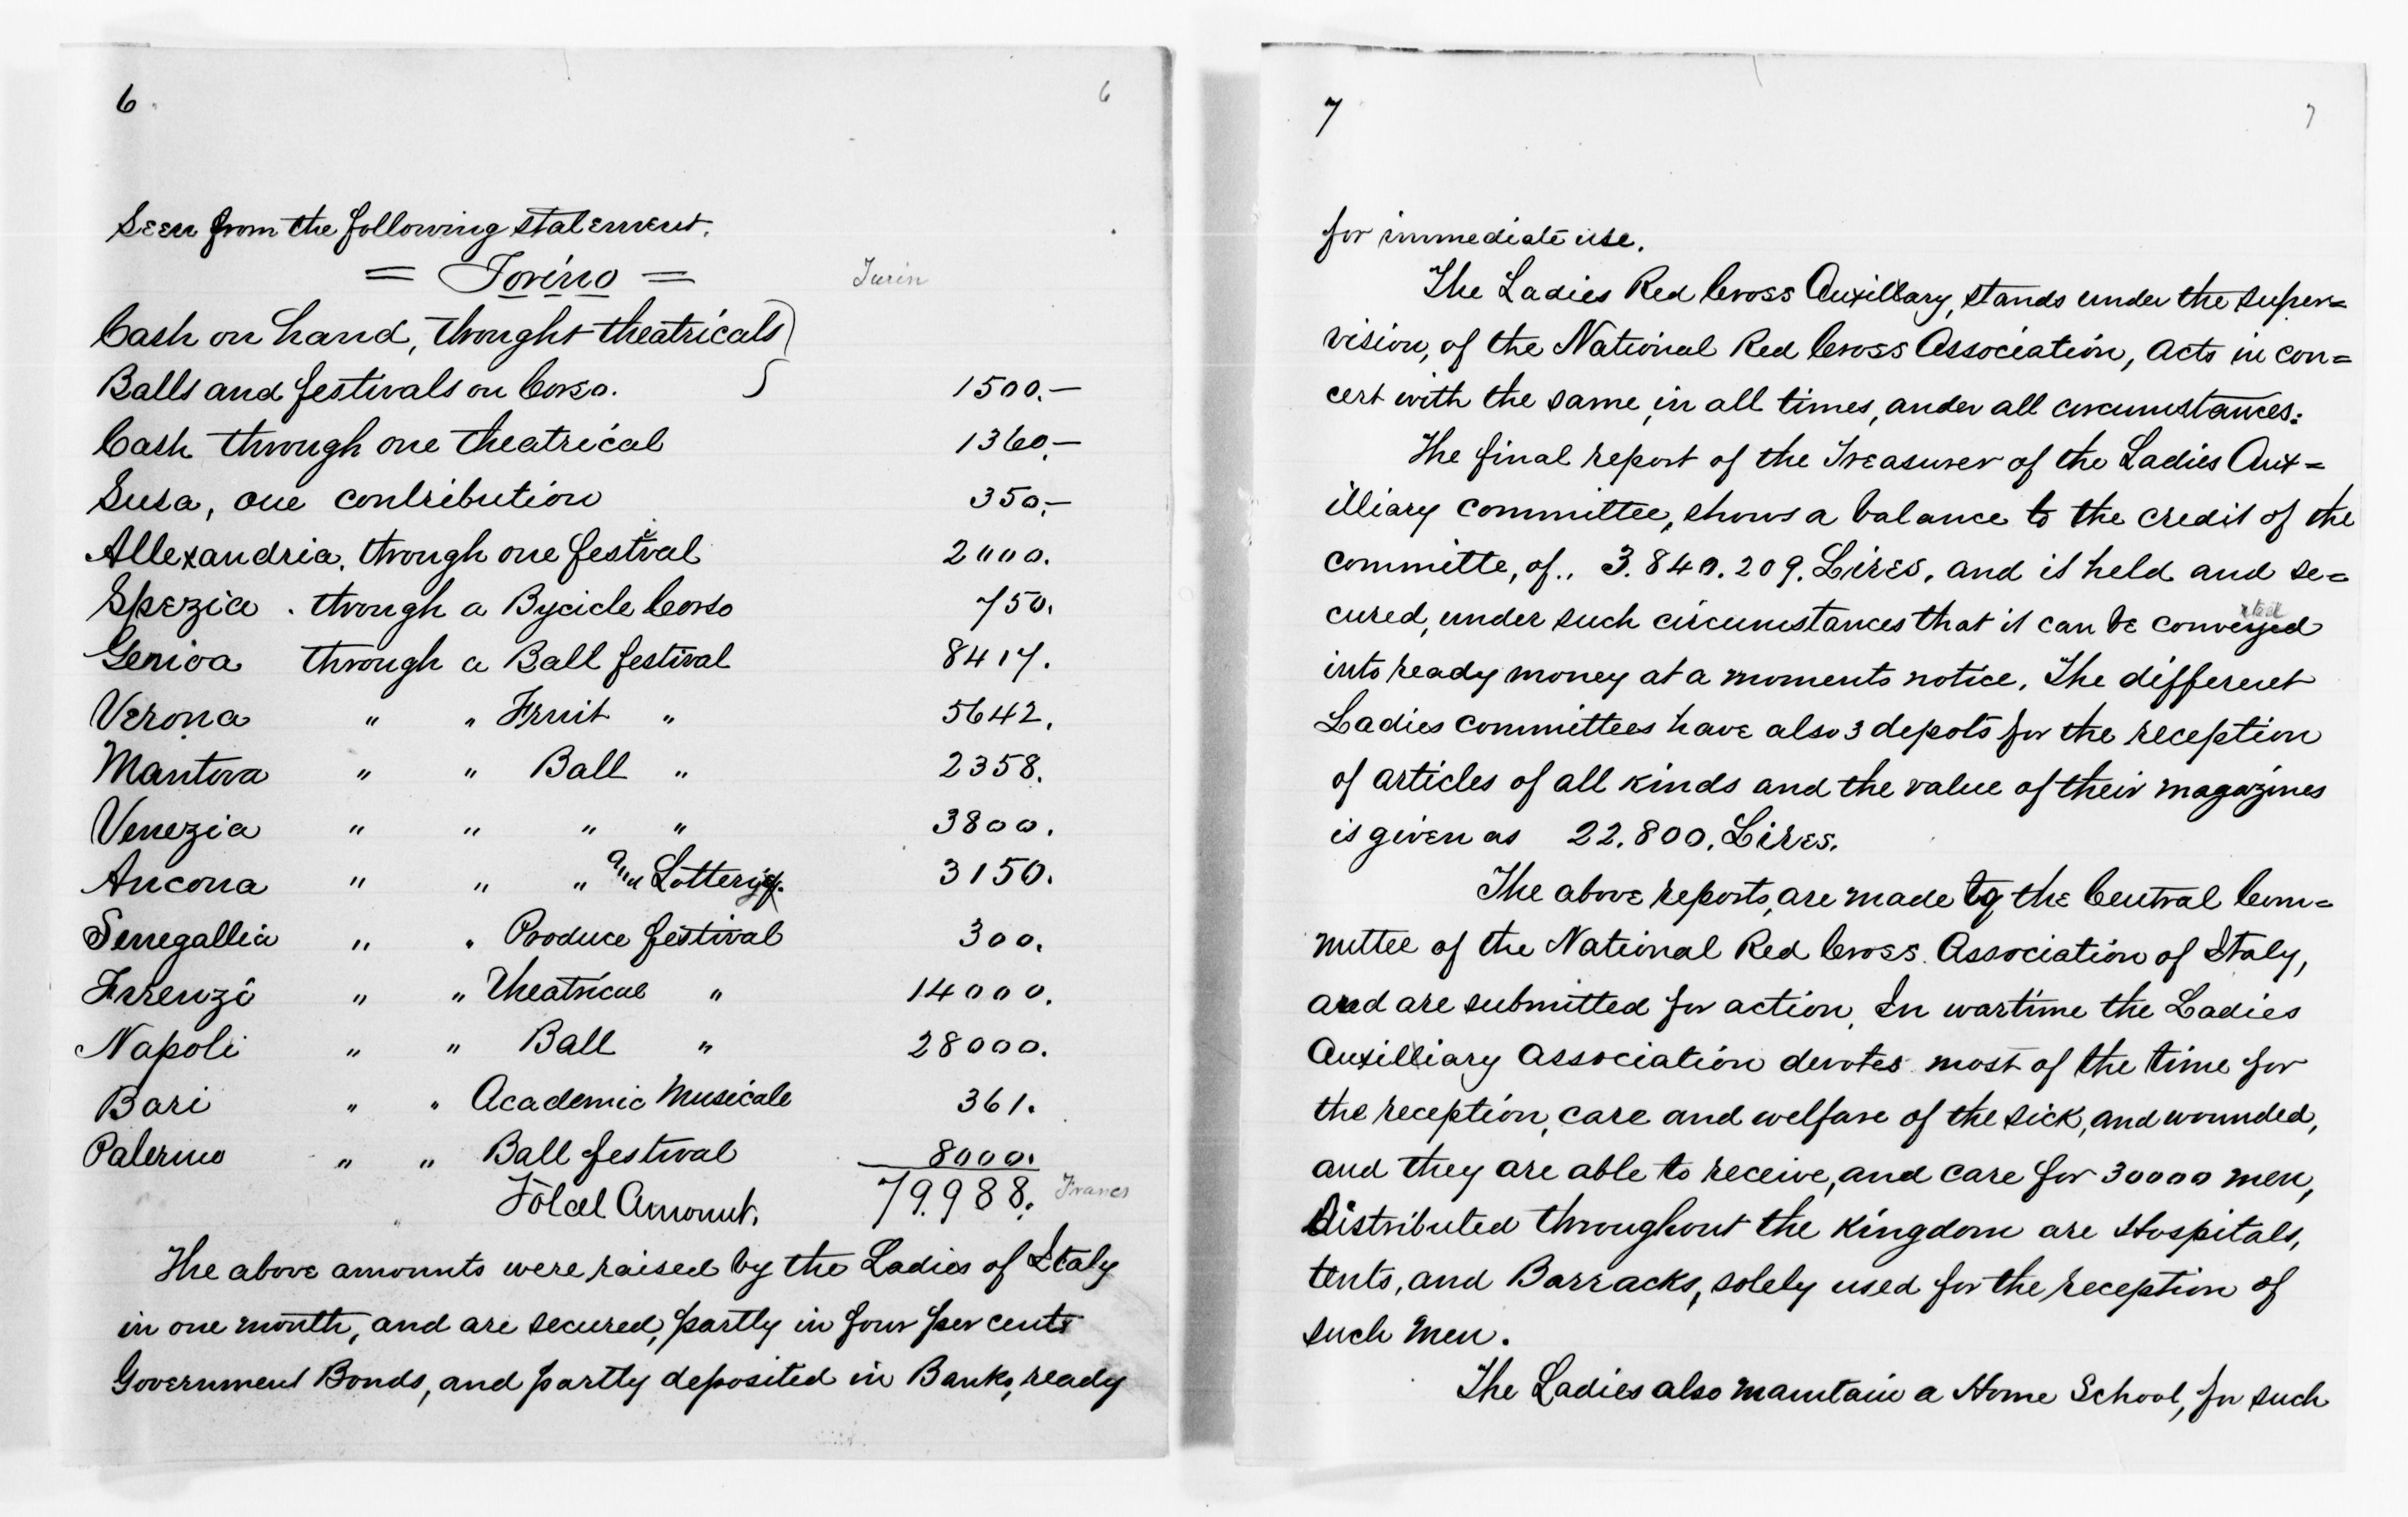 6.
6
Seen from the following statement.
= Torino =
Turin
Cash on hand, throught theatricals
Balls and festivals on Corso. 1500.—
Cash through one theatrical 1360.—
Susa, one contribution 350.—
Allexandria, through one festival 2000.
Spezia. through a Bycicle Corso 750.
Genioa through a Ball festival 8417.
Verona " " Fruit " 5642.
Mantova " " Ball " 2358.
Venezia " " " " 3800.
Ancona " " " and Lottery. 3150.
Senegallia " " Produce festival 300.
Firenzi " " Theatrical " 14000.
Napoli " " Ball " 28000.
Bari " " Academic Musicale 361.
Palermo " " Ball festival 8000.
Total Amount. 79.988. Francs
The above amounts were raised by the Ladies of Italy
in one month, and are secured, partly in four per cents
Government Bonds, and partly deposited in Banks, ready
7
7
for immediate use.
The Ladies Red Cross Auxillary, stands under the super=
vision, of the National Red Cross Association, acts in con=
cert with the same, in all times, ander all circumstances.
The final report of the Treasurer of the Ladies Aux=
illiary committee, shows a balance to the credit of the
committe, of.. 3.840.209. Lires. and is held and se=
cured, under such circumstances that it can be conveyed
into ready money at a moments notice. The different
Ladies committees have also 3 depots for the reception
of articles of all kinds and the value of their magazines
is given as 22.800. Lires.
The above reports, are made to the Central Com=
mittee of the National Red Cross Association of Italy,
and are submitted for action. In wartime the Ladies
Auxilliary Association devotes most of the time for
the reception, care and welfare of the sick, and wounded,
and they are able to receive, and care for 30000 men,
Distributed throughout the Kingdom are Hospitals,
tents, and Barracks, solely used for the reception of
such men.
The Ladies also maintain a Home School, for such